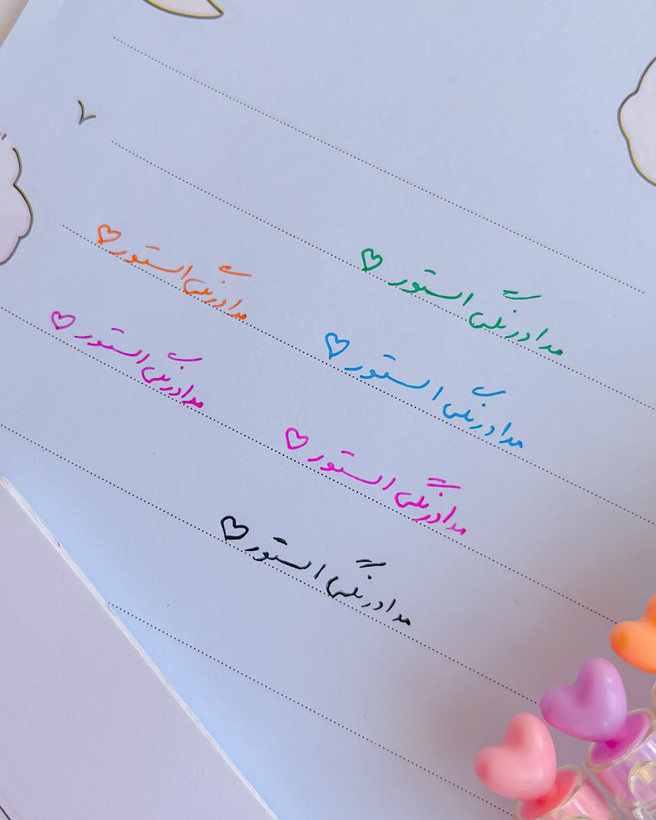 مدادرنگی استور
مدادرنگی استور
مدادرنگی استور
مدادرنگی استور
مدادرنگی استور
مدادرنگی استور